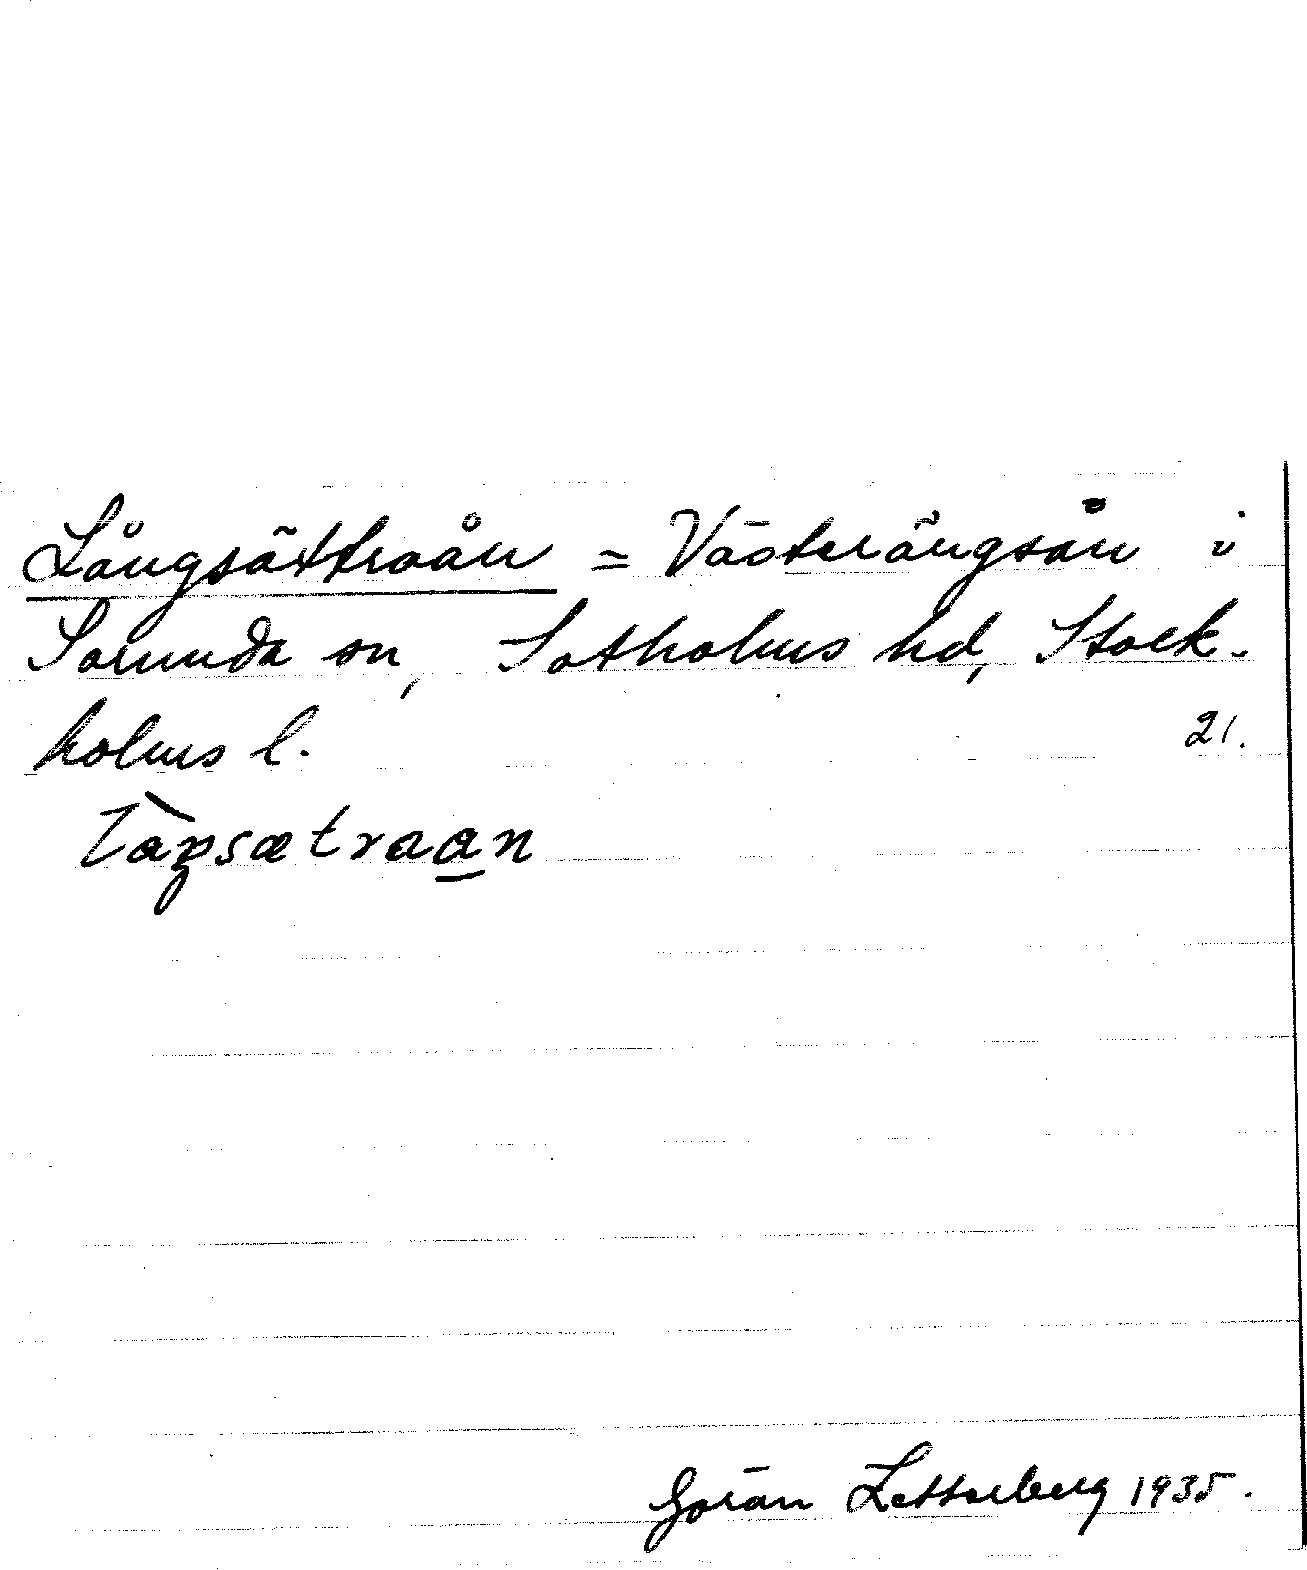 Långsättraån = Västerängsån i
Sorunda sn, Sotholms hd, Stock-
holms l.
21.
Göran Zetterberg 1935.